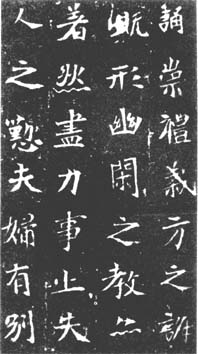 誦崇禮義方之訓
既形幽閑之教亦
著然盡力事上夫
人之懃夫婦有別